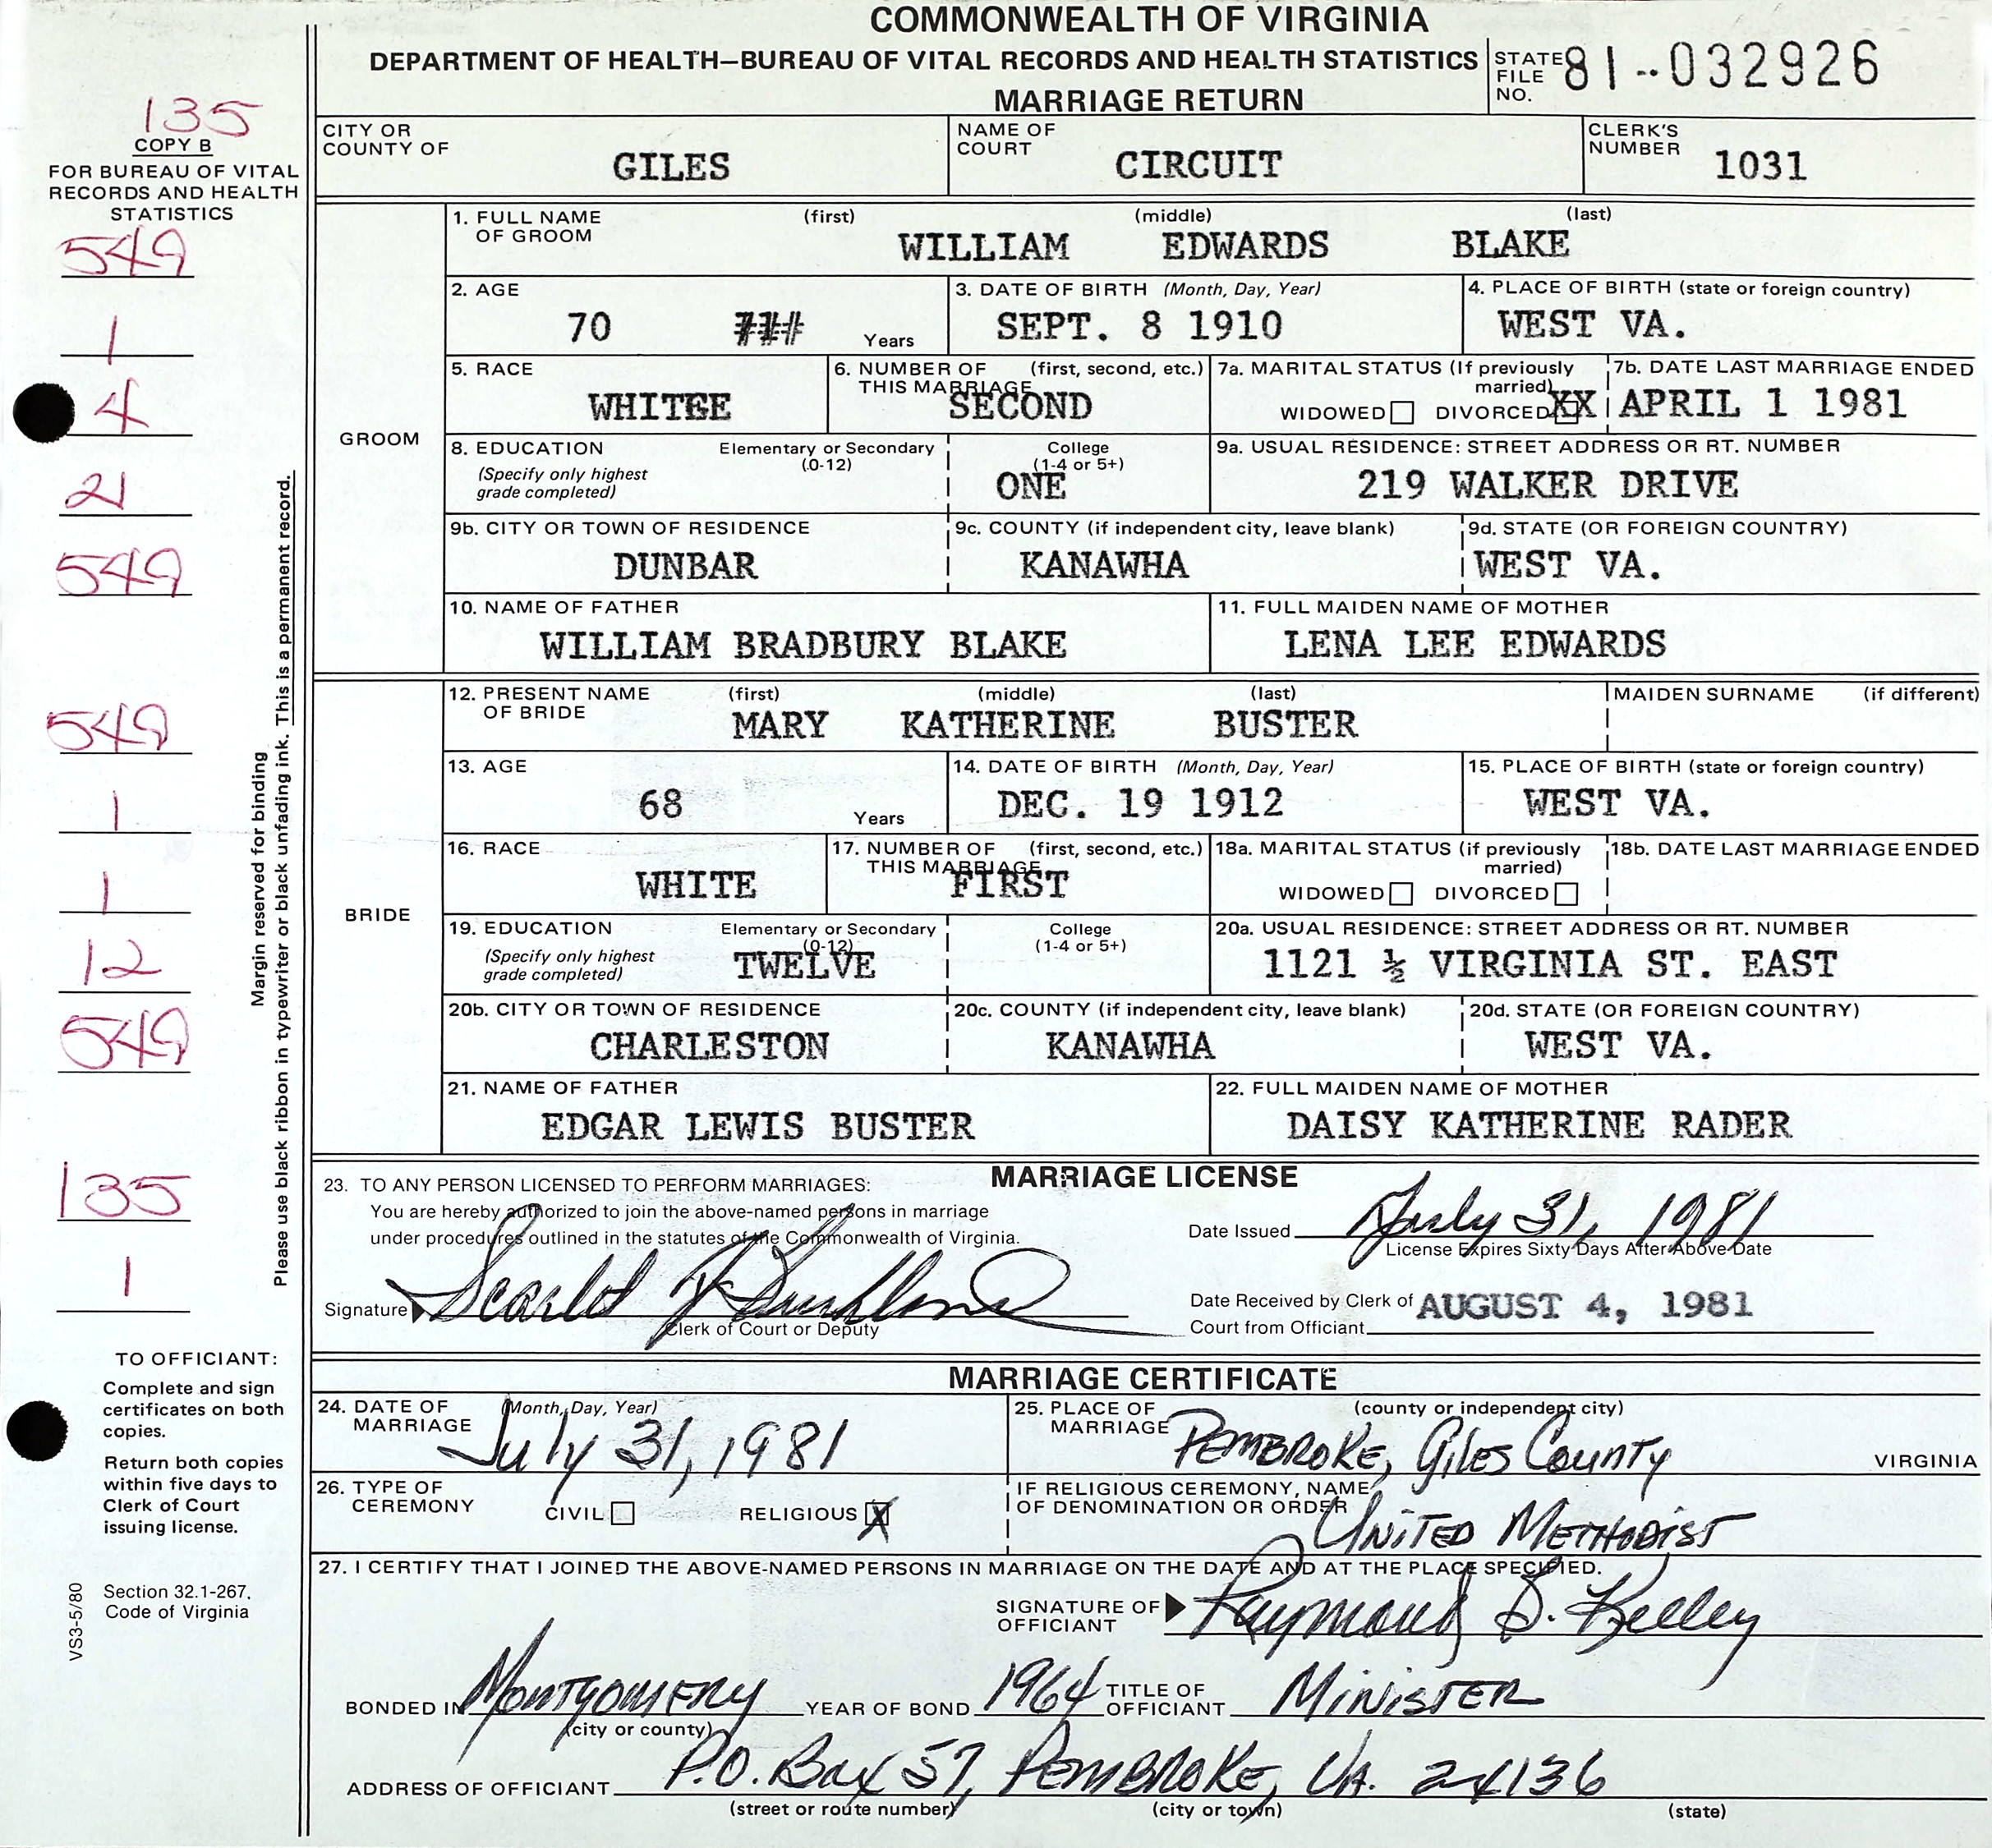 COMMONWEALTH OF VIRGINIA
DEPARTMENT OF HEALTH—BUREAU OF VITAL RECORDS AND HEALTH STATISTICS
MARRIAGE RETURN
STATE FILE NO. 81--032926
135
COPY B
FOR BUREAU OF VITAL
RECORDS AND HEALTH
STATISTICS
549
1
4
21
549
549
1
1
12
549
135
1
Margin reserved for binding
Please use black ribbon in typewriter or black unfading ink. This is a permanent record.
TO OFFICIANT:
Complete and sign
certificates on both
copies.
Return both copies
within five days to
Clerk of Court
issuing license.
Section 32.1-267,
Code of Virginia
VS3-5/80
CITY OR COUNTY OF GILES
NAME OF COURT CIRCUIT
CLERK'S NUMBER 1031
GROOM
1. FULL NAME OF GROOM (first) (middle) (last)
WILLIAM EDWARDS BLAKE
2. AGE 70 Years
3. DATE OF BIRTH (Month, Day, Year) SEPT. 8 1910
4. PLACE OF BIRTH (state or foreign country) WEST VA.
5. RACE WHITE
6. NUMBER OF THIS MARRIAGE (first, second, etc.) SECOND
7a. MARITAL STATUS (If previously married) WIDOWED DIVORCED XX
7b. DATE LAST MARRIAGE ENDED APRIL 1 1981
8. EDUCATION (Specify only highest grade completed) Elementary or Secondary (0-12) College (1-4 or 5+) ONE
9a. USUAL RESIDENCE: STREET ADDRESS OR RT. NUMBER 219 WALKER DRIVE
9b. CITY OR TOWN OF RESIDENCE DUNBAR
9c. COUNTY (if independent city, leave blank) KANAWHA
9d. STATE (OR FOREIGN COUNTRY) WEST VA.
10. NAME OF FATHER WILLIAM BRADBURY BLAKE
11. FULL MAIDEN NAME OF MOTHER LENA LEE EDWARDS
BRIDE
12. PRESENT NAME OF BRIDE (first) (middle) (last) MAIDEN SURNAME (if different)
MARY KATHERINE BUSTER
13. AGE 68 Years
14. DATE OF BIRTH (Month, Day, Year) DEC. 19 1912
15. PLACE OF BIRTH (state or foreign country) WEST VA.
16. RACE WHITE
17. NUMBER OF THIS MARRIAGE (first, second, etc.) FIRST
18a. MARITAL STATUS (if previously married) WIDOWED DIVORCED
18b. DATE LAST MARRIAGE ENDED
19. EDUCATION (Specify only highest grade completed) Elementary or Secondary (0-12) TWELVE College (1-4 or 5+)
20a. USUAL RESIDENCE: STREET ADDRESS OR RT. NUMBER 1121 ½ VIRGINIA ST. EAST
20b. CITY OR TOWN OF RESIDENCE CHARLESTON
20c. COUNTY (if independent city, leave blank) KANAWHA
20d. STATE (OR FOREIGN COUNTRY) WEST VA.
21. NAME OF FATHER EDGAR LEWIS BUSTER
22. FULL MAIDEN NAME OF MOTHER DAISY KATHERINE RADER
MARRIAGE LICENSE
23. TO ANY PERSON LICENSED TO PERFORM MARRIAGES:
You are hereby authorized to join the above-named persons in marriage
under procedures outlined in the statutes of the Commonwealth of Virginia.
Date Issued July 31, 1981
License Expires Sixty Days After Above Date
Signature
Clerk of Court or Deputy
Date Received by Clerk of Court from Officiant AUGUST 4, 1981
MARRIAGE CERTIFICATE
24. DATE OF MARRIAGE (Month, Day, Year) July 31, 1981
25. PLACE OF MARRIAGE (county or independent city) PEMBROKE, Giles County VIRGINIA
26. TYPE OF CEREMONY CIVIL RELIGIOUS X
IF RELIGIOUS CEREMONY, NAME OF DENOMINATION OR ORDER UNITED METHODIST
27. I CERTIFY THAT I JOINED THE ABOVE-NAMED PERSONS IN MARRIAGE ON THE DATE AND AT THE PLACE SPECIFIED.
SIGNATURE OF OFFICIANT Raymond S. Kelley
BONDED IN MONTGOMERY (city or county) YEAR OF BOND 1964 TITLE OF OFFICIANT MINISTER
ADDRESS OF OFFICIANT P.O. Box 57, PEMBROKE, VA. 24136
(street or route number) (city or town) (state)